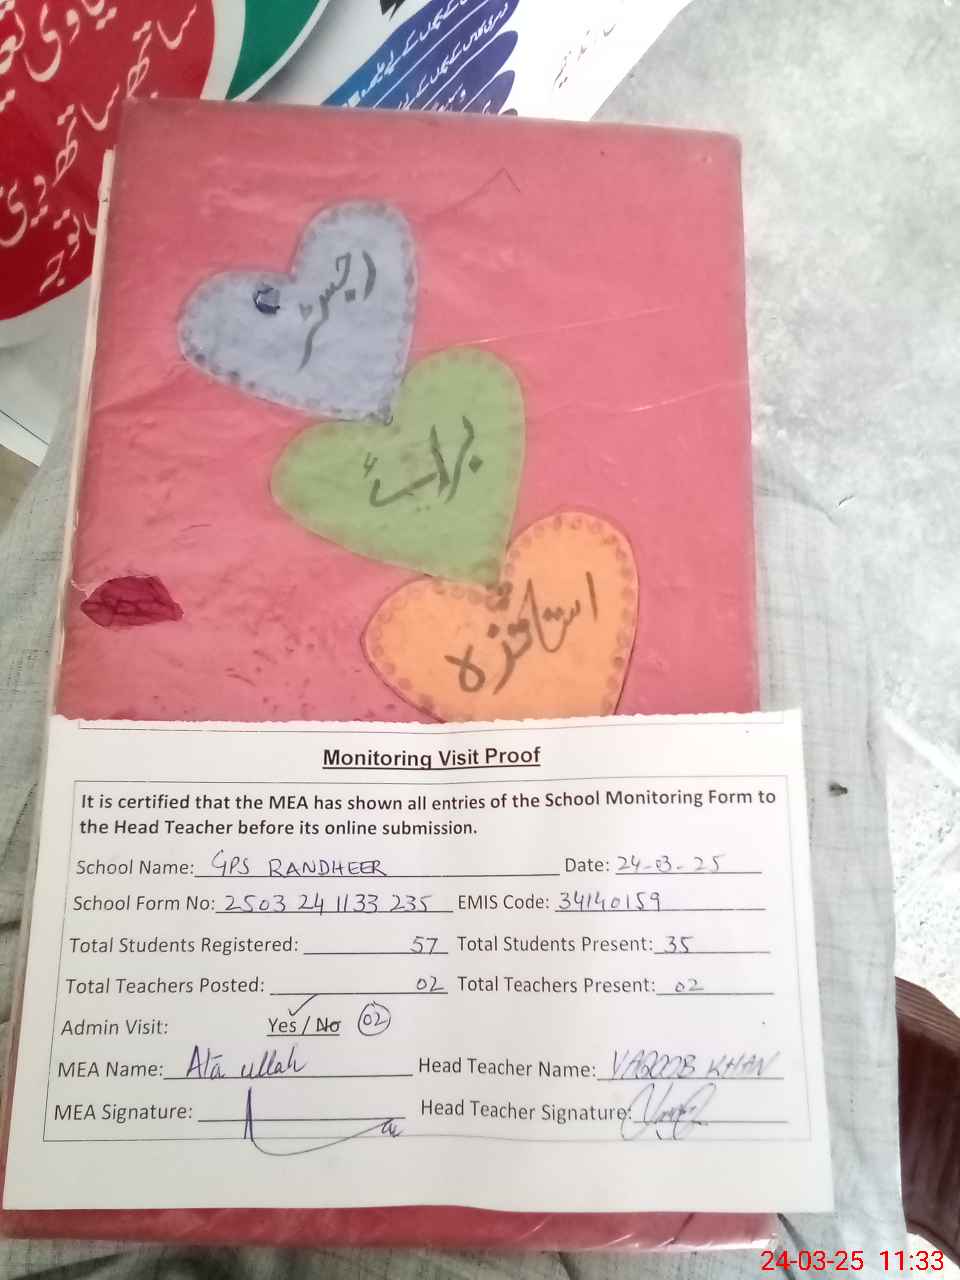 ساتھ ساتھ دیں
رجسٹر
برائے
اساتذہ
Monitoring Visit Proof
It is certified that the MEA has shown all entries of the School Monitoring Form to
the Head Teacher before its online submission.
School Name: GPS RANDHEER Date: 24-03-25
School Form No: 2503 24 1133 235 EMIS Code: 34140159
Total Students Registered: 57 Total Students Present: 35
Total Teachers Posted: 02 Total Teachers Present: 02
Admin Visit: Yes / No 02
MEA Name: Ata ullah Head Teacher Name: YAQOOB KHAN
MEA Signature: Head Teacher Signature:
24-03-25 11:33